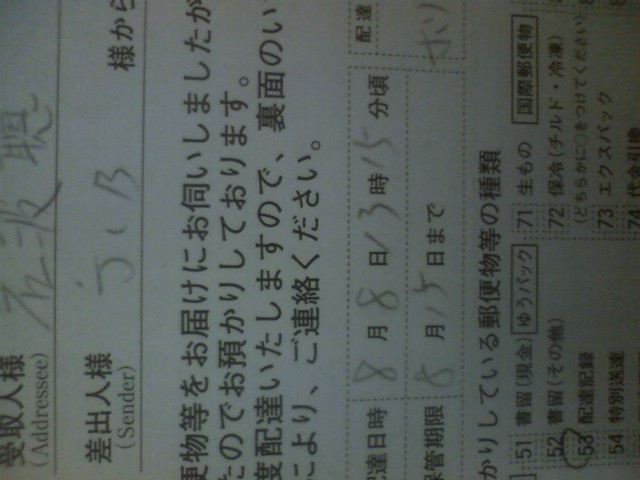 受取人様
(Addressee)
差出人様 様から
(Sender) JCB
便物等をお届けにお伺いしましたが
たのでお預かりしております。
度配達いたしますので、裏面のい
により、ご連絡ください。
配達日時 8月8日13時15分頃 配達
保管期限 8月15日まで
かりしている郵便物等の種類
51 書留(現金) ゆうパック 71 生もの 国際郵便物
52 書留(その他) 72 保冷(チルド・冷凍)
(どちらかに○をつけてください)
53 配達記録 73 エクスパック
54 特別送達 74 代金引換